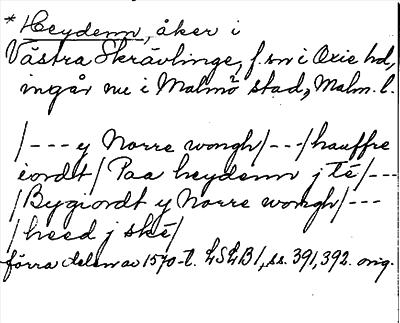 * Heydenn, åker i
Västra Skrävlinge, f. sn i Oxie hd,
ingår nu i Malmö stad, Malm. l.
/--- y Norre wongh/---/hauffre
iordt/ Paa heydenn j té/---
/Bygiordt y Norre wongh/---
/heed j ské/
förra delen av 1570-t. LSLB1, ss. 391, 392. orig.